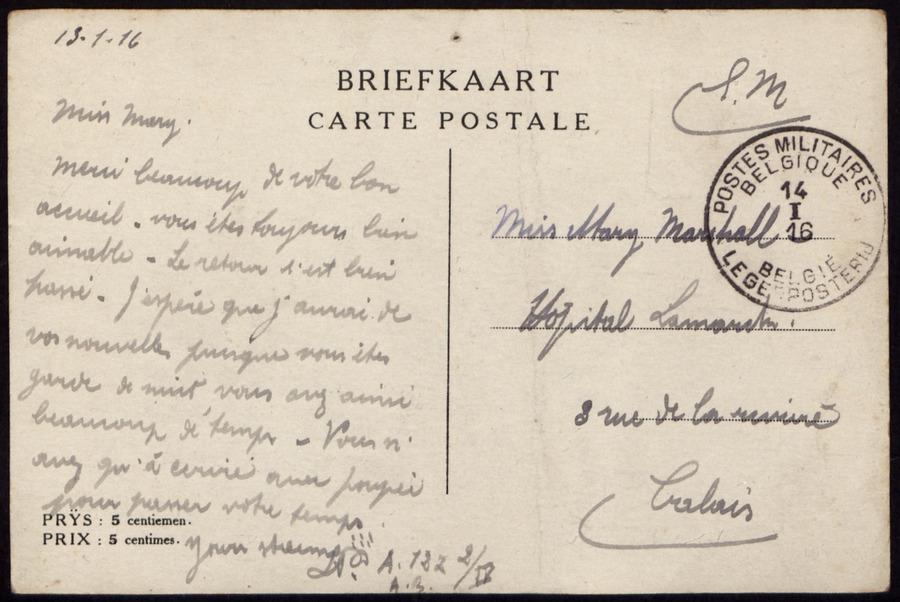 13-1-16
BRIEFKAART
CARTE POSTALE
S.M
Miss Mary.
Merci beaucoup de votre bon
accueil - vous êtes toujours bien
aimable - Le retour s'est bien
passé - J'espère que j'aurai de
vos nouvelles puisque vous êtes
garde de nuit vous avez ainsi
beaucoup de temps - Vous n'
avez qu'à
pour passer votre temps.
Yours
A. 182 2/IV
POSTES MILITAIRES
BELGIQUE
14
I
16
BELGIË
LEGERPOSTERIJ
Miss Mary Marshall
Hôpital
8 rue de la
Calais
PRŸS : 5 centiemen.
PRIX : 5 centimes.